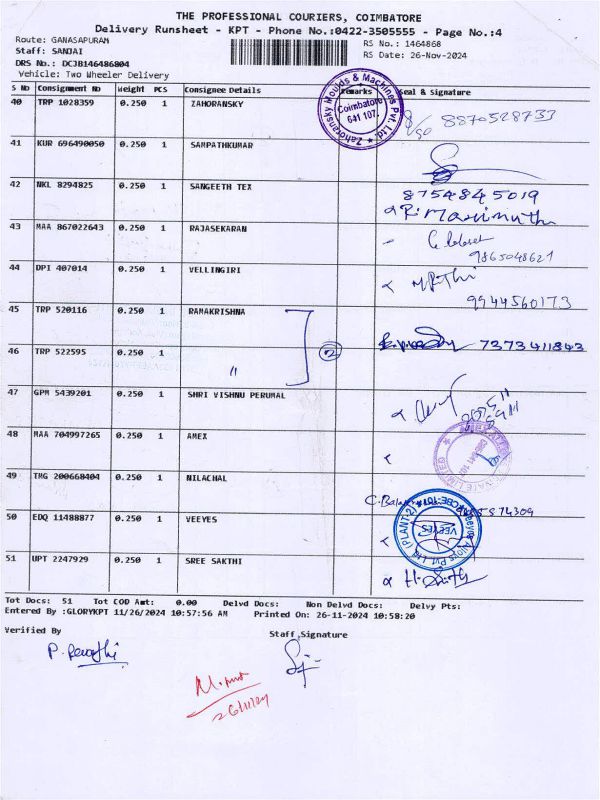 THE PROFESSIONAL COURIERS, COIMBATORE
Delivery Runsheet - KPT - Phone No.:0422-3505555 - Page No.:4
Route: GANASAPURAM
RS No.: 1464868
Staff: SANJAI
RS Date: 26-Nov-2024
DRS No.: DC3B146486804
Vehicle: Two Wheeler Delivery
S No Consignment No Weight PCS Consignee Details Remarks Seal & signature
40 TRP 1028359 0.250 1 ZAHORANSKY
Zahoransky Moulds & Machines Pvt. Ltd.
Coimbatore
641 107.
8870528733
41 KUR 696490050 0.250 1 SAMPATHKUMAR
42 NKL 8294825 0.250 1 SANGEETH TEX
8754845019
43 MAA 867022643 0.250 1 RAJASEKARAN
9865048621
44 DPI 407014 0.250 1 VELLINGIRI
9944560173
45 TRP 520116 0.250 1 RAMAKRISHNA
7373411843
46 TRP 522595 0.250 1 "
2
47 GPM 5439201 0.250 1 SHRI VISHNU PERUMAL
48 MAA 704997265 0.250 1 AMEX
49 TMG 200668404 0.250 1 NILACHAL
50 EDQ 11488877 0.250 1 VEEYES
VEEYES
(PLANT-2)
51 UPT 2247929 0.250 1 SREE SAKTHI
Tot Docs: 51 Tot COD Amt: 0.00 Delvd Docs: Non Delvd Docs: Delvy Pts:
Entered By :GLORYKPT 11/26/2024 10:57:56 AM Printed On: 26-11-2024 10:58:20
Verified By Staff Signature
P. Revathi